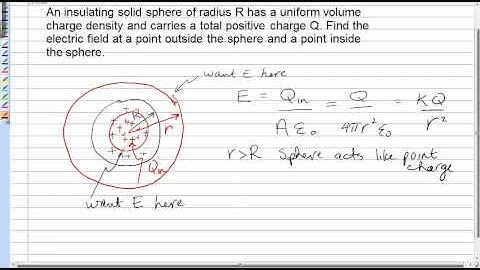 An insulating solid sphere of radius R has a uniform volume
charge density and carries a total positive charge Q. Find the
electric field at a point outside the sphere and a point inside
the sphere.
want E here
E = Qin / Aε₀ = Q / 4πr²ε₀ = KQ / r²
R
r
r
Qin
r>R Sphere acts like point
charge
want E here